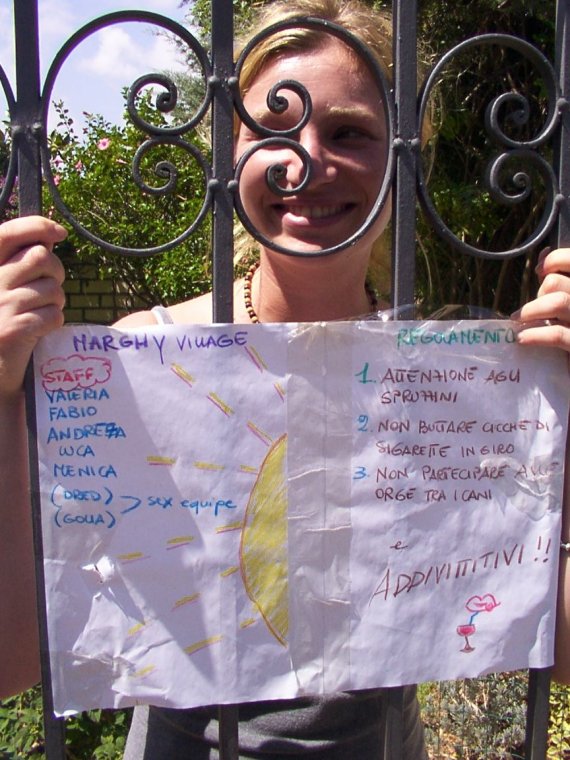 MARGHY VILLAGE
STAFF
VALERIA
FABIO
ANDREZZA
LUCA
MENICA
(DRED)
(GOLIA)
> sex equipe
REGOLAMENTO
1. ATTENZIONE AGLI
SPRUZZINI
2. NON BUTTARE CICCHE DI
SIGARETTE IN GIRO
3. NON PARTECIPARE ALLE
ORGE TRA I CANI
e
ADDIVITITIVI!!